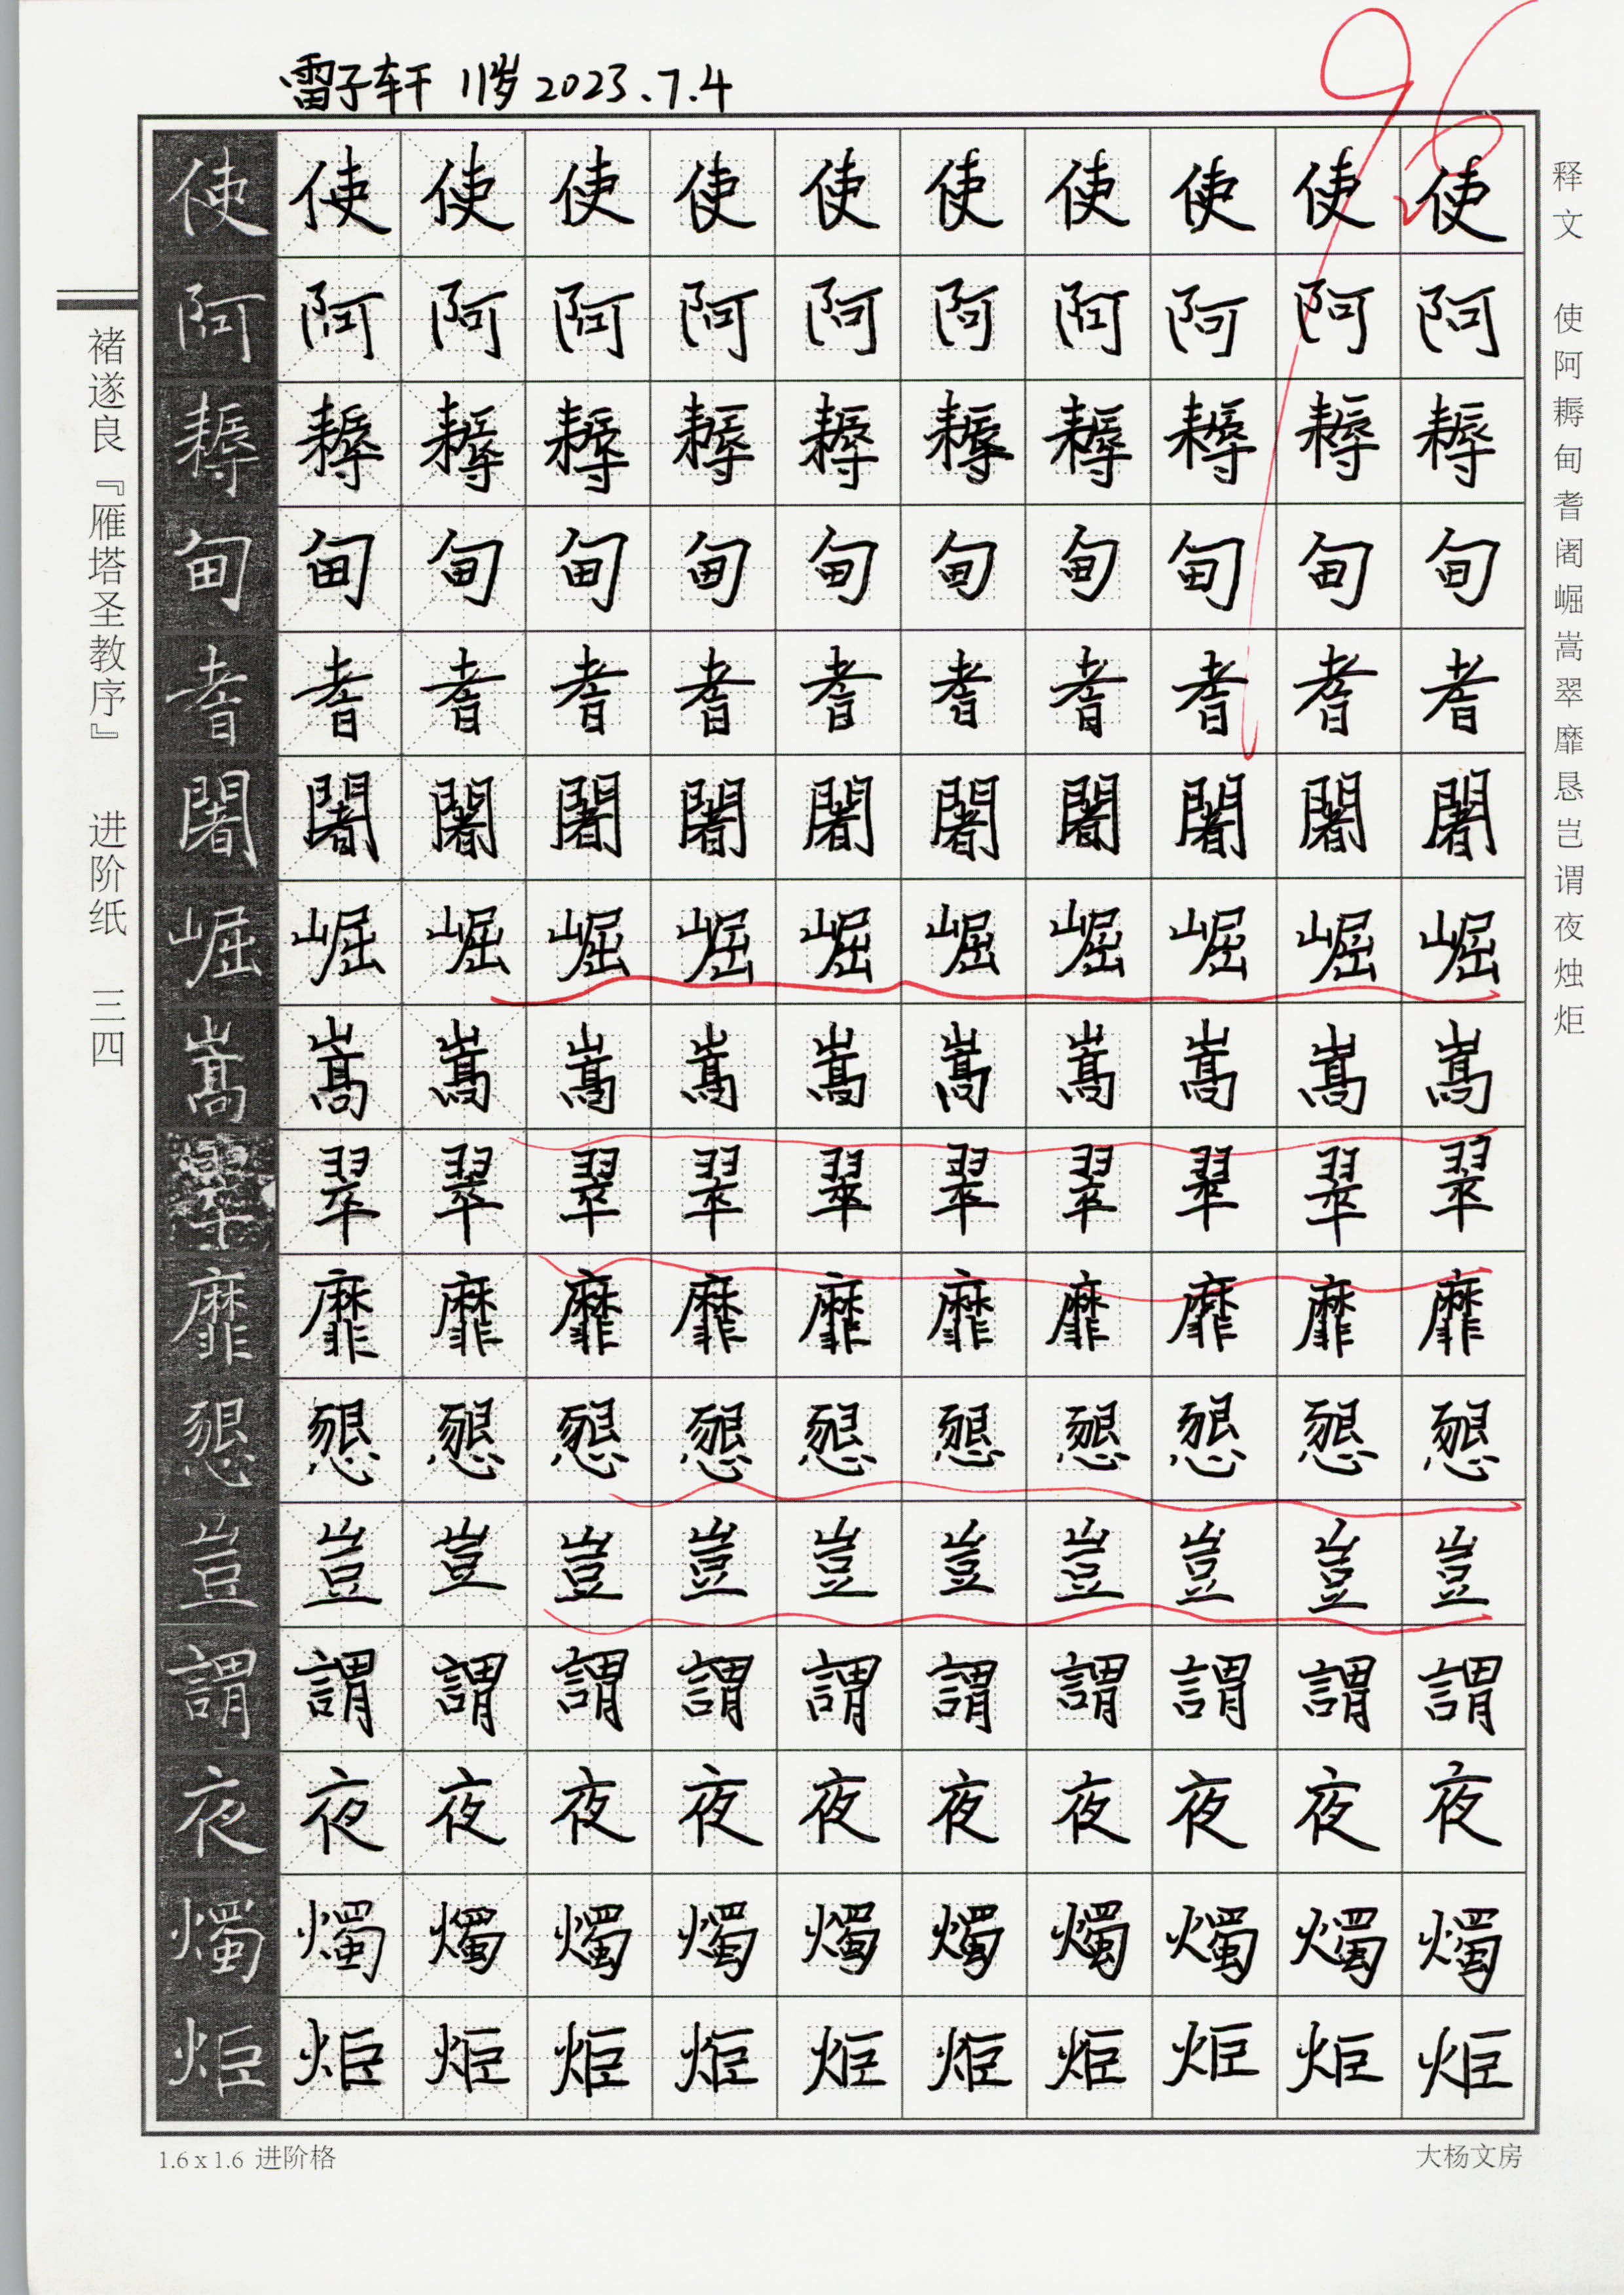 雷子轩 11岁 2023.7.4
96
使使使使使使使使使使使
阿阿阿阿阿阿阿阿阿阿阿
耨耨耨耨耨耨耨耨耨耨耨
甸甸甸甸甸甸甸甸甸甸甸
耆耆耆耆耆耆耆耆耆耆耆
闍闍闍闍闍闍闍闍闍闍闍
崛崛崛崛崛崛崛崛崛崛崛
嵩嵩嵩嵩嵩嵩嵩嵩嵩嵩嵩
翠翠翠翠翠翠翠翠翠翠翠
靡靡靡靡靡靡靡靡靡靡靡
懇懇懇懇懇懇懇懇懇懇懇
豈豈豈豈豈豈豈豈豈豈豈
謂謂謂謂謂謂謂謂謂謂謂
夜夜夜夜夜夜夜夜夜夜夜
燭燭燭燭燭燭燭燭燭燭燭
炬炬炬炬炬炬炬炬炬炬炬
释文 使阿耨甸耆阇崛嵩翠靡恳岂谓夜烛炬
褚遂良『雁塔圣教序』 进阶纸 三四
1.6x1.6 进阶格
大杨文房